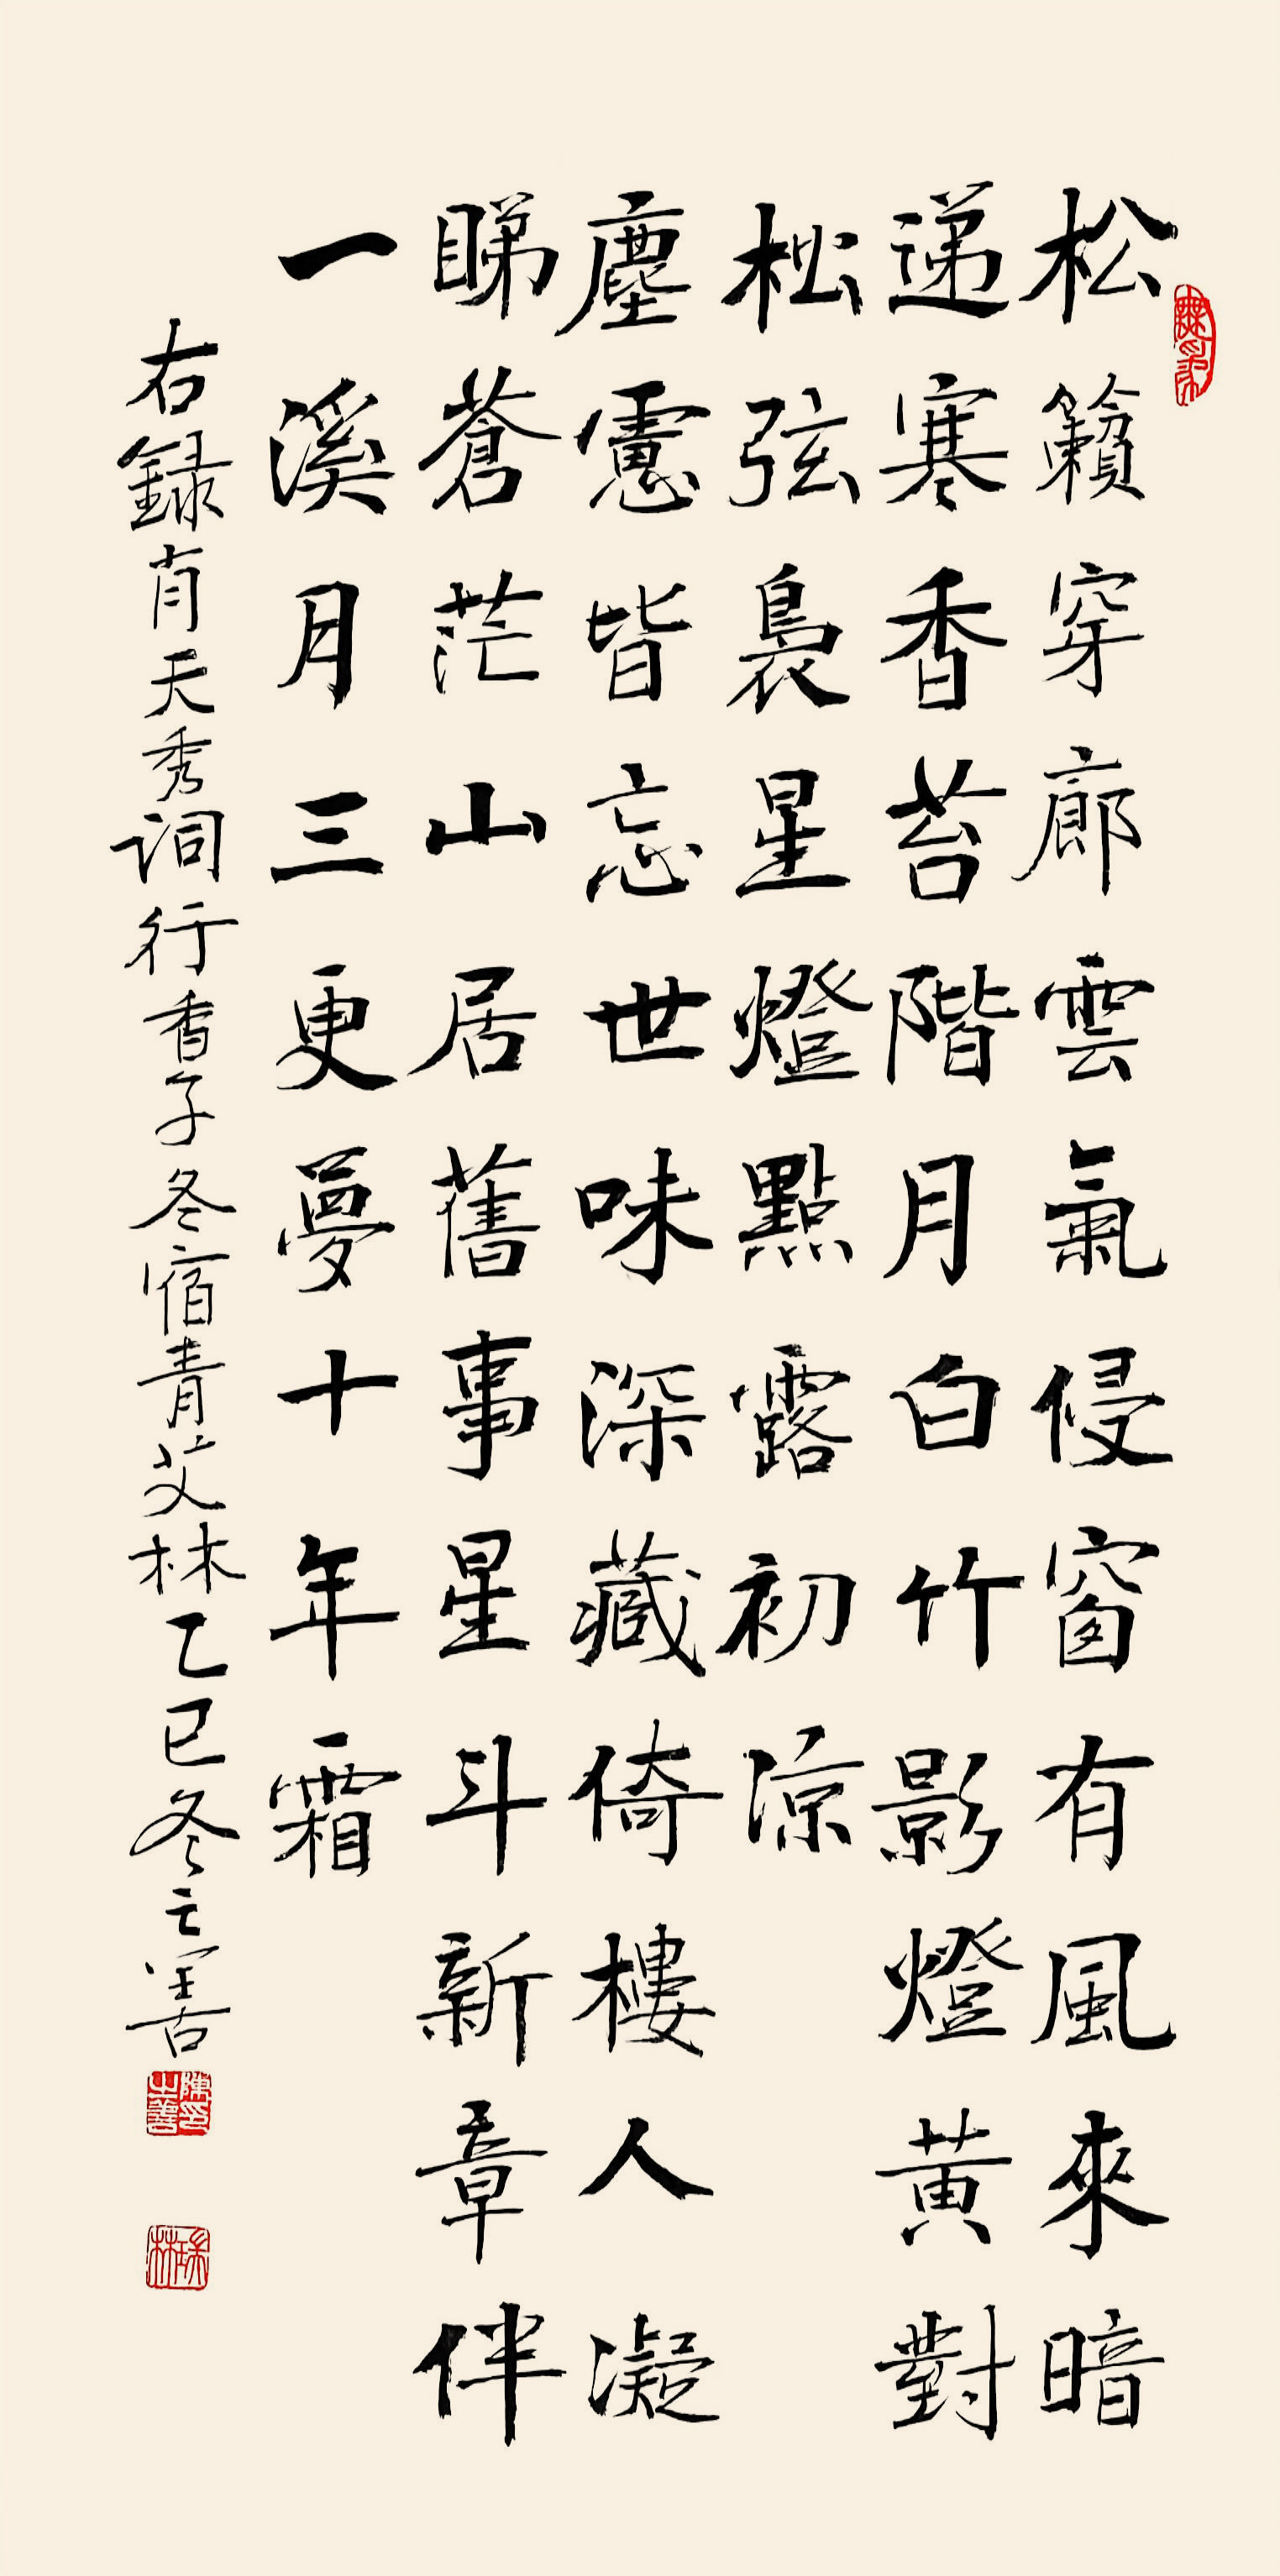 松籟穿廊雲氣侵窗有風來暗
递寒香苔階月白竹影燈黃對
松弦裊星燈點露初涼
塵慮皆忘世味深藏倚樓人凝
睇蒼茫山居舊事星斗新章伴
一溪月三更夢十年霜
右録肖天秀词行香子冬宿青艾林乙巳冬之善
陳之善印